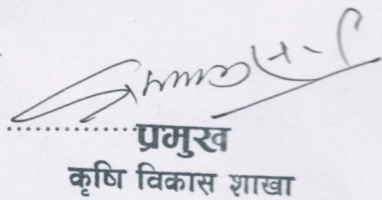 ..................
प्रमुख
कृषि विकास शाखा